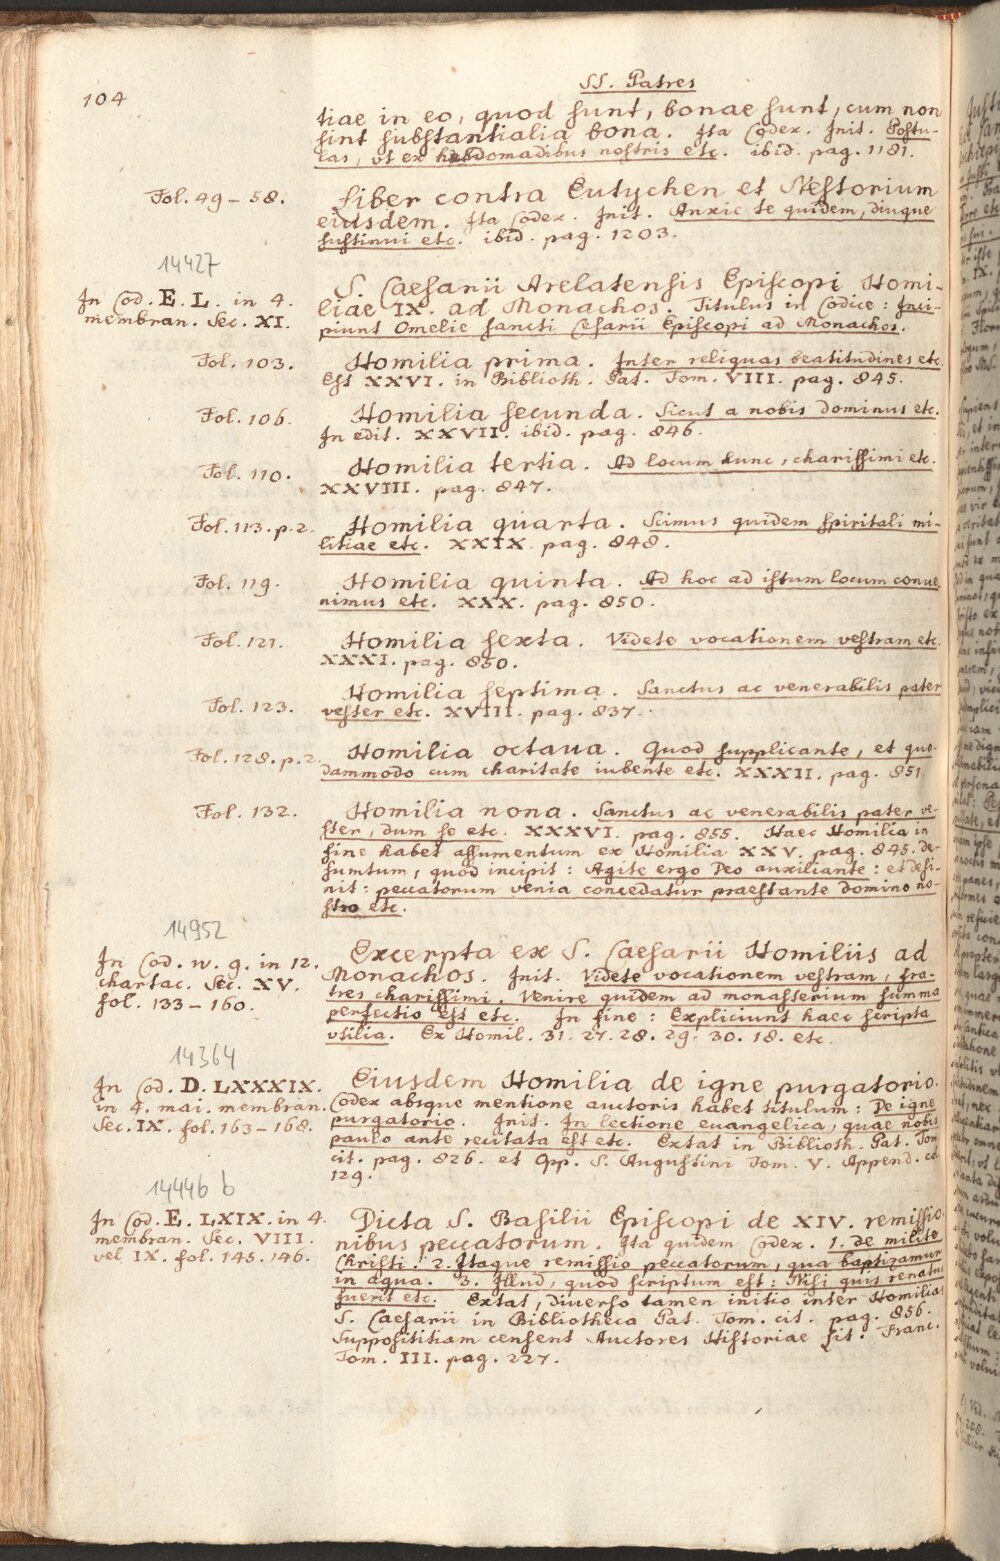 SS. Patres
104
tiae in eo, quod sunt, bonae sunt, cum non
sint substantialia bona. Ita Codex. Init. Postu-
las, vt ex hebdomadibus nostris etc. ibid. pag. 1181.
Fol. 49 – 58.
Liber contra Eutychen et Nestorium
eiusdem. Ita Codex. Init. Anxie te quidem, diuque
sustinui etc. ibid. pag. 1203.
14427
In Cod. E. L. in 4.
membran. Sec. XI.
S. Caesarii Arelatensis Episcopi Homi-
liae IX. ad Monachos. Titulus in Codice: Inci-
piunt Omelie sancti Cesarii Episcopi ad Monachos.
Fol. 103.
Homilia prima. Inter reliquas beatitudines etc.
Est XXVI. in Biblioth. Pat. Tom. VIII. pag. 845.
Fol. 106.
Homilia secunda. Sicut a nobis dominus etc.
In edit. XXVII. ibid. pag. 846.
Fol. 110.
Homilia tertia. Ad locum hunc, charissimi etc.
XXVIII. pag. 847.
Fol. 113. p. 2.
Homilia quarta. Scimus quidem spiritali mi-
litiae etc. XXIX. pag. 848.
Fol. 119.
Homilia quinta. Ad hoc ad istum locum conue
nimus etc. XXX. pag. 850.
Fol. 121.
Homilia sexta. Videte vocationem vestram etc.
XXXI. pag. 850.
Fol. 123.
Homilia septima. Sanctus ac venerabilis pater
vester etc. XVIII. pag. 837.
Fol. 128. p. 2.
Homilia octaua. Quod supplicante, et quo-
dammodo cum charitate iubente etc. XXXII. pag. 851
Fol. 132.
Homilia nona. Sanctus ac venerabilis pater ve-
ster, dum se etc. XXXVI. pag. 855. Haec Homilia in
fine habet assumentum ex Homilia XXV. pag. 845. de-
sumtum, quod incipit: Agite ergo Deo auxiliante: et desi-
nit: peccatorum venia concedatur praestante domino no-
stro etc.
14952
In Cod. w. 9. in 12.
chartac. Sec. XV.
fol. 133 – 160.
Excerpta ex S. Caesarii Homiliis ad
Monachos. Init. Videte vocationem vestram, fra-
tres charissimi. Venire quidem ad monasterium summa
perfectio est etc. In fine: Expliciunt haec scripta
vtilia. Ex Homil. 31. 27. 28. 29. 30. 18. etc.
14364
In Cod. D. LXXXIX.
in 4. mai. membran.
Sec. IX. fol. 163 – 168.
Eiusdem Homilia de igne purgatorio.
Codex absque mentione auctoris habet titulum: De igne
purgatorio. Init. In lectione euangelica, quae nobis
paulo ante recitata est etc. Extat in Biblioth. Pat. Tom
cit. pag. 826. et Opp. S. Augustini Tom. V. Append. col
129.
14446 b
In Cod. E. LXIX. in 4.
membran. Sec. VIII.
vel IX. fol. 145. 146.
Dicta S. Basilii Episcopi de XIV. remissio-
nibus peccatorum. Ita quidem Codex. 1. de milite
Christi. 2. Itaque remissio peccatorum, qua baptizamur
in aqua. 3. Illud, quod scriptum est: Nisi quis renatus
fuerit etc. Extat, diuerso tamen initio inter Homilias
S. Caesarii in Bibliotheca Pat. Tom. cit. pag. 856.
Supposititiam censent Auctores Historiae Lit. Franc.
Tom. III. pag. 227.